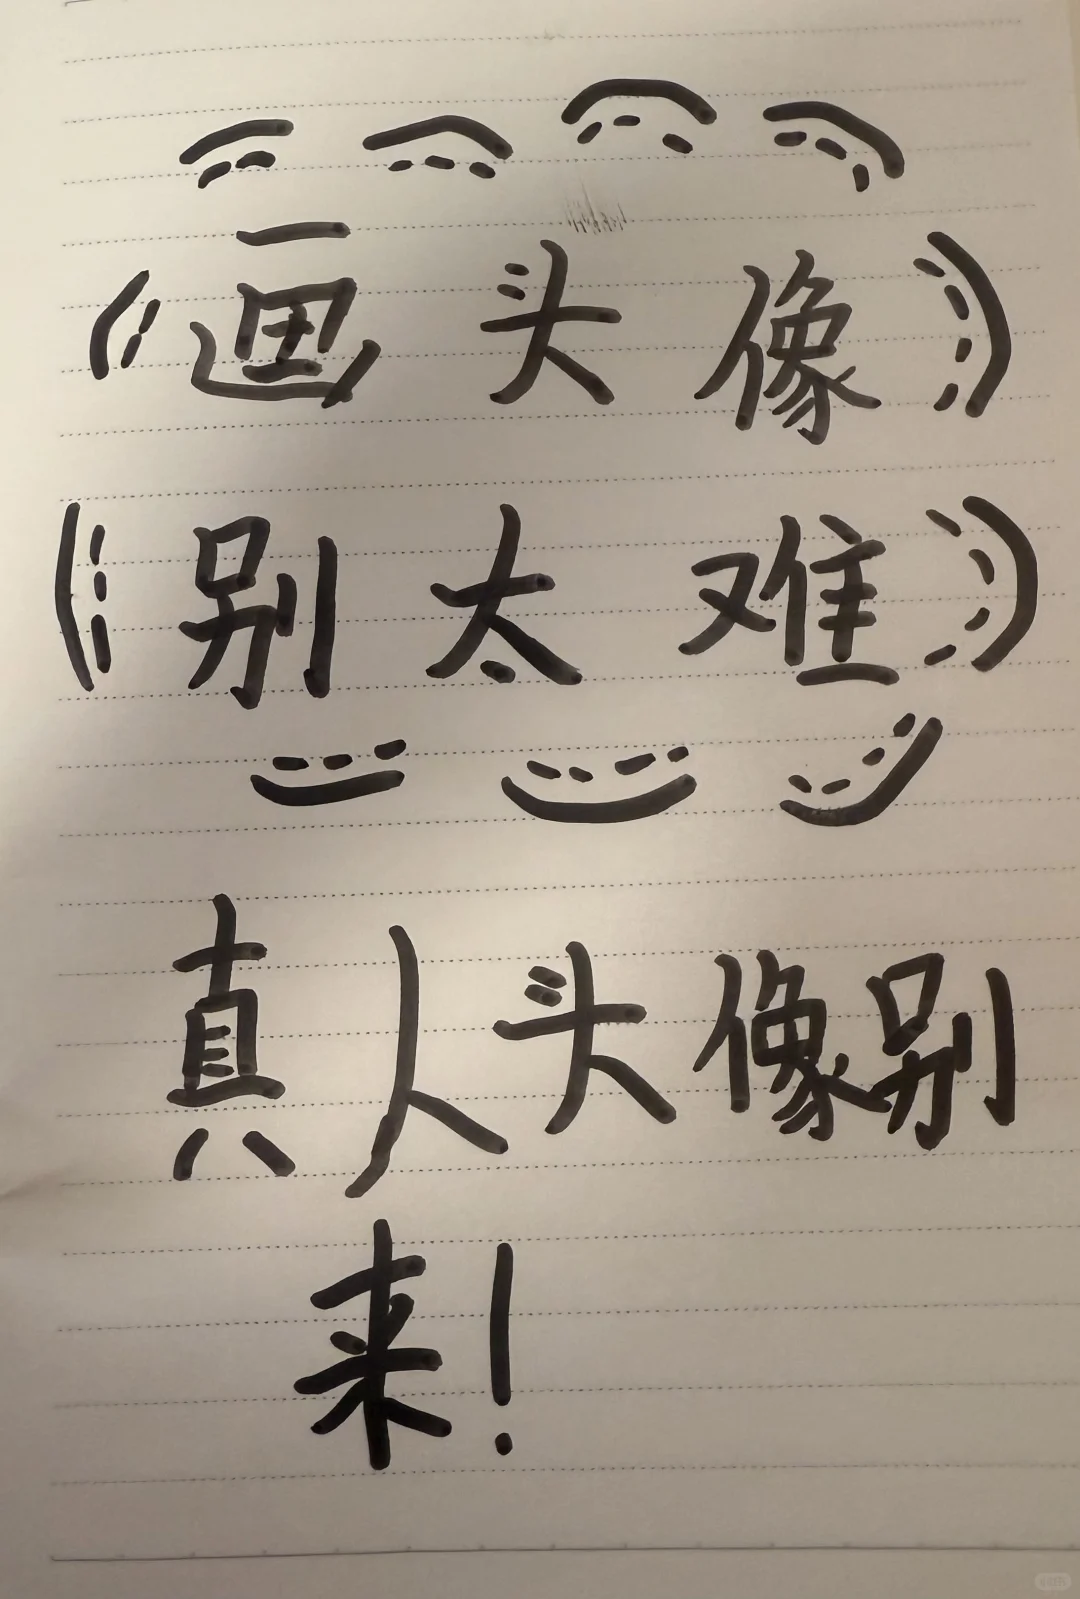 画头像
别太难
真人头像别
来！